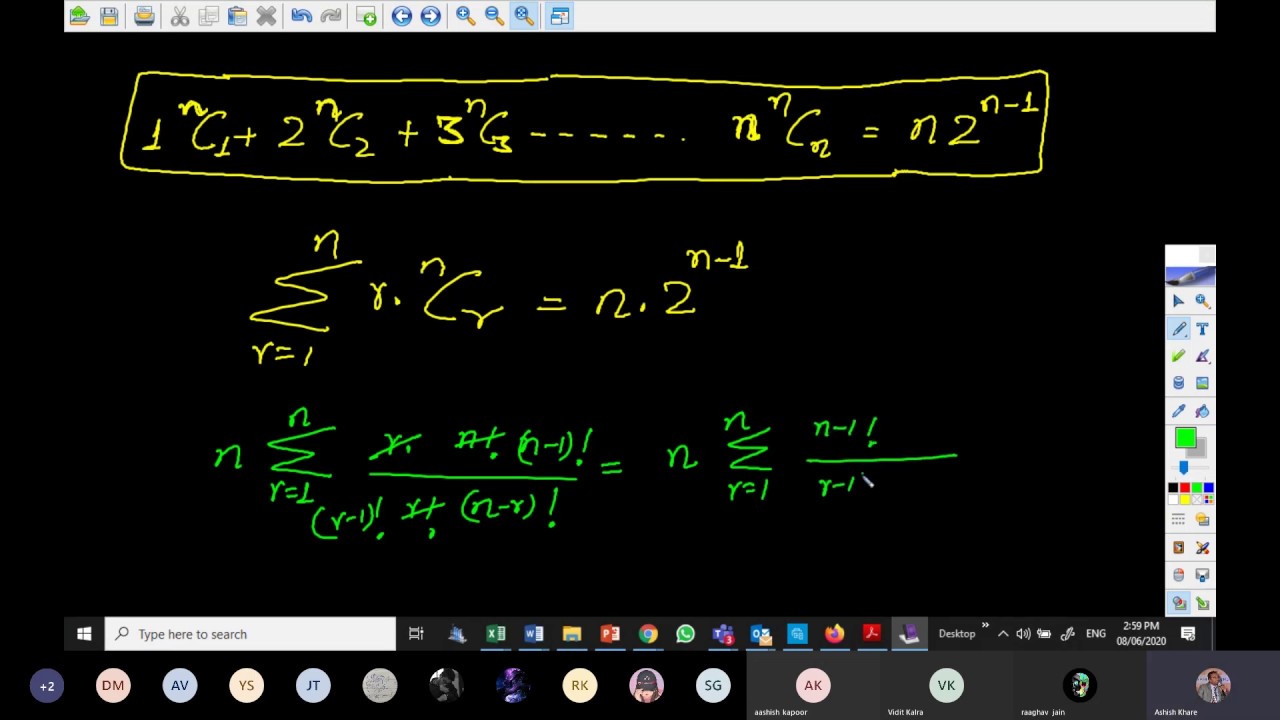 1 ⁿC₁ + 2 ⁿC₂ + 3 ⁿC₃ ------- n ⁿCₙ = n 2ⁿ⁻¹
n
∑ r. ⁿCᵣ = n . 2ⁿ⁻¹
r=1
n ∑ r. n! (n-1)! = n ∑ n-1!
r=1 (r-1)! r! (n-r)! r=1 r-1
Type here to search
Desktop
ENG
2:59 PM
08/06/2020
+2 DM AV YS JT RK SG AK VK
aashish kapoor Vidit Kalra raaghav jain Ashish Khare